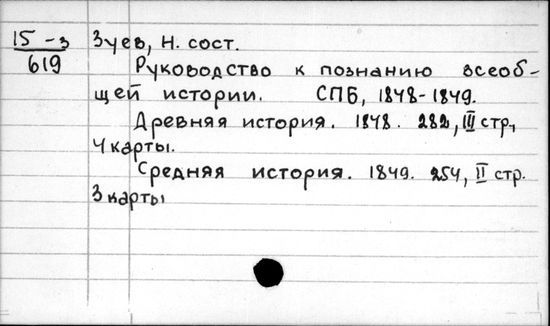 15-3
619
Зуев, Н. сост.
Руководство к познанию всеоб-
щей истории. СПб, 1848-1849.
Древняя история. 1848. 282, III стр,
4 карты.
Средняя история. 1849. 254, II стр.
3 карты